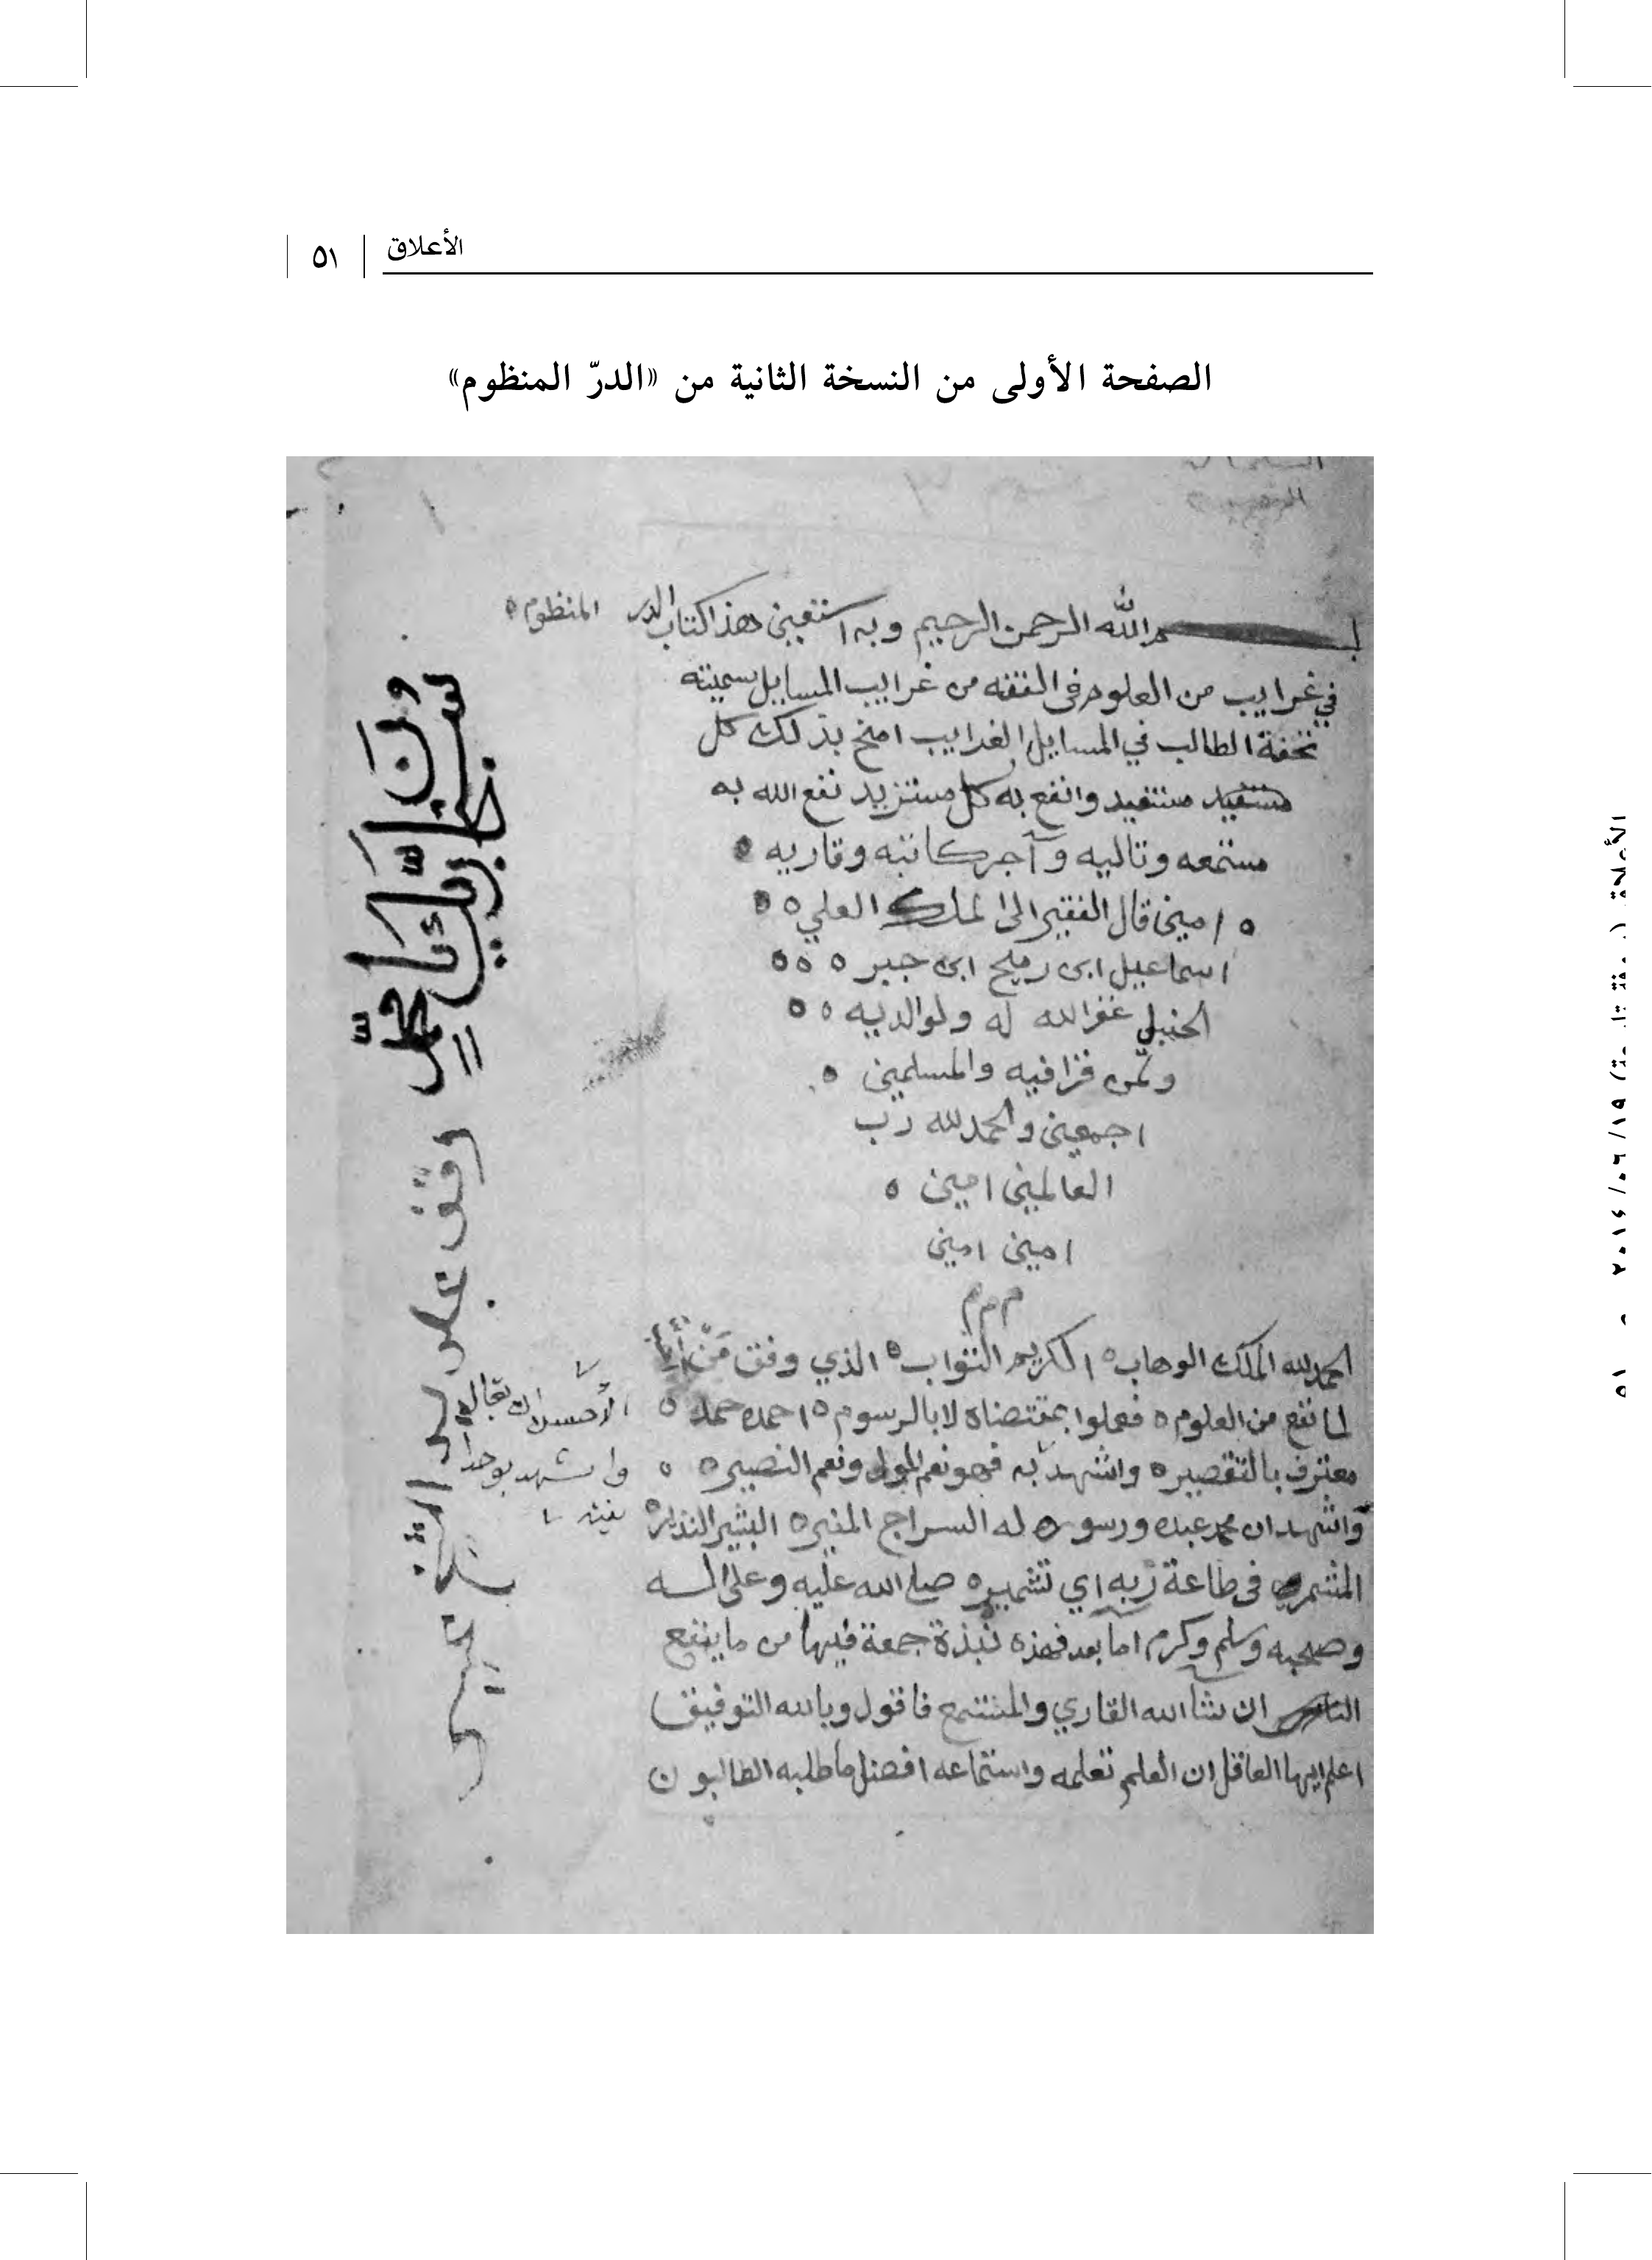 الأعلاق
٥١
الصفحة الأولى من النسخة الثانية من «الدرّ المنظوم»
بسم الله الرحمن الرحيم وبه استعين هذا كتاب الدر المنظوم ه
في غرايب من العلوم في الفقه من غرايب المسايل سميته
تحفة الطالب في المسايل الغرايب امنح بذلك كل
مستفيد وانفع به كل مستزيد نفع الله به
مستمعه وتاليه وآجر كاتبه وقاريه ه
ه امين قال الفقير الى الملك العلي ه ه
اسماعيل ابن رميح ابن جبر ه ه ه
الحنبلي غفر الله له ولوالديه ه ه
ولمن قرا فيه والمسلمين ه
اجمعين والحمد لله رب
العالمين امين ه
امين امين
م م م
الحمد لله الملك الوهاب ه الكريم التواب ه الذي وفق من
لما نفع من العلوم ه فعملوا بمقتضاه لا بالرسوم ه احمده حمد ه
معترف بالتقصير ه واشهد به فهو نعم المولى ونعم النصير ه ه
واشهد ان محمد عبده ورسوله السراج المنير ه البشير النذير ه
المشمر في طاعة ربه اي تشمير ه صلى الله عليه وعلى اله
وصحبه وسلم وكرم اما بعد فهذه نبذة جمعة فيها من ما ينفع
ان شا الله القاري والمستمع فاقول وبالله التوفيق
اعلم ايها العاقل ان العلم تعلمه واستماعه افضل ما طلبه الطالبون
وا شهد بوحدا
نيته